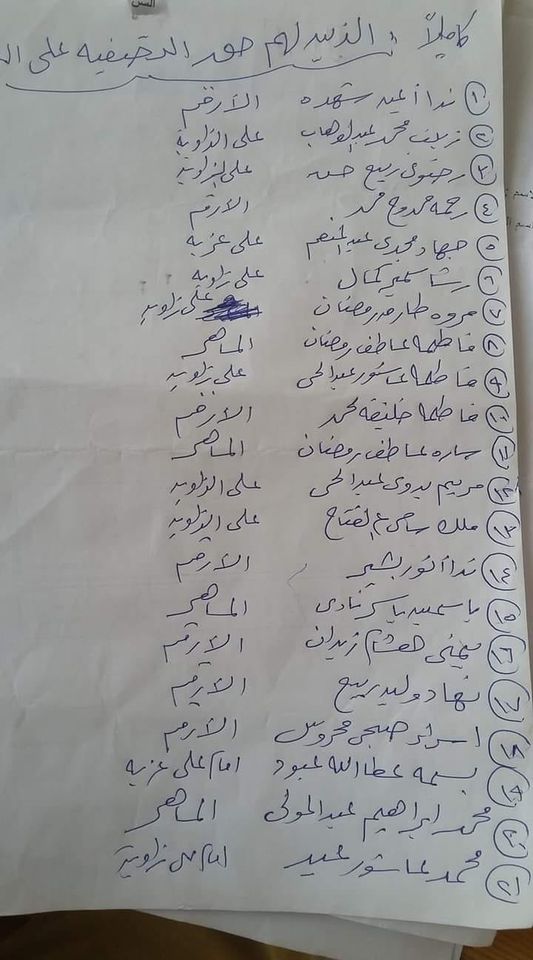 كاملاً : الذين لهم حق التصفيه على
١ ندا أيمن شحده الأرقم
٢ زينب محمد عبدالوهاب على الزاوية
٣ رضوى ربيع حسن على الزاوية
٤ رحمه ممدوح محمد الأرقم
٥ جهاد مجدى عبدالمنعم على عزبه
٦ رشا سمير كمال على زاويه
٧ مروه طارق رمضان على زاوية
٨ فاطمه عاطف رمضان الماهر
٩ فاطمه عاشور عبدالحى على زاوية
١٠ فاطمه خليفه محمد الأرقم
١١ ساره عاطف رمضان الماهر
١٢ مريم بدوى عبدالحى على الزاوية
١٣ ملك سامى ع الفتاح على الزاوية
١٤ ندا أنور بشير الأرقم
١٥ ياسمين ياسر نادى الماهر
١٦ يمنى هشام زيدان الأرقم
١٧ نهاد وليد ربيع الأرقم
١٨ اسراء صبحى محروس الأرقم
١٩ بسمه عطاالله عبود امام على عزبه
٢٠ محمد ابراهيم عبدالمولى الماهر
٢١ محمد عاشور عيد امام زاوية